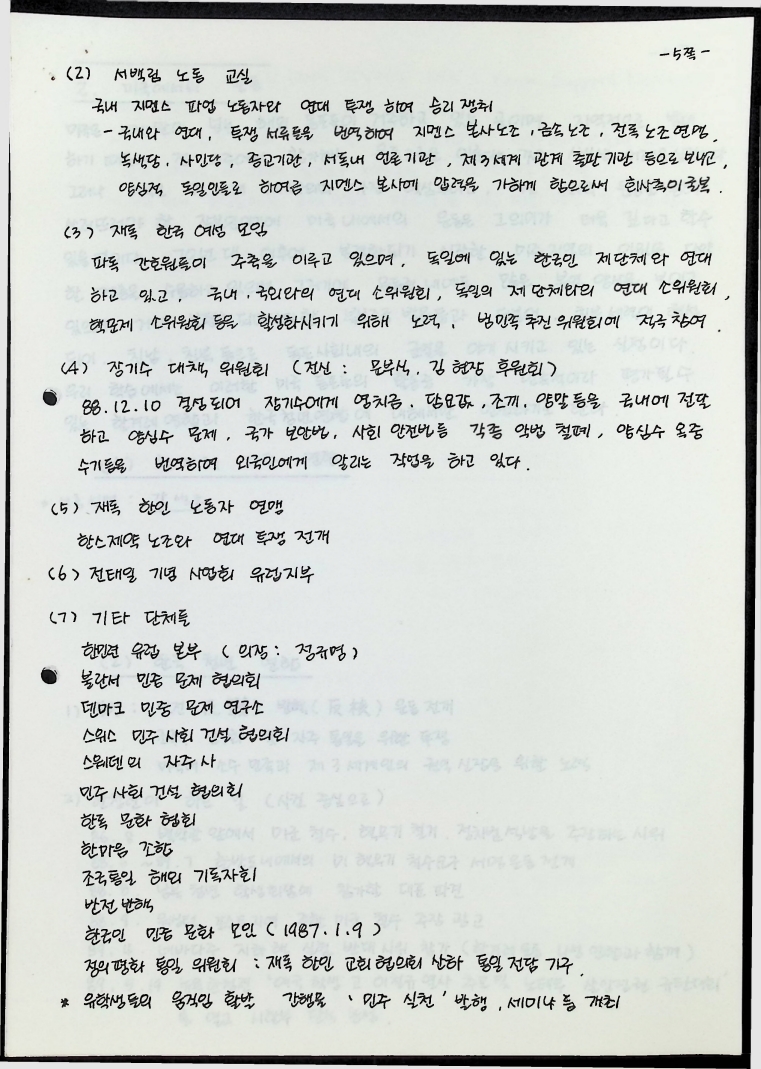 -5쪽-
(2) 서백림 노동 교실
국내 지멘스 파업 노동자와 연대 투쟁 하여 승리 쟁취
- 국내와 연대, 투쟁 서류들을 번역하여 지멘스 본사노조, 금속노조, 전독 노조 연맹,
녹색당, 사민당, 종교기관, 서독내 언론기관, 제3세계 관계 출판기관 등으로 보내고,
양심적 독일인들로 하여금 지멘스 본사에 압력을 가하게 함으로써 회사측이 굴복.
(3) 재독 한국 여성 모임
파독 간호원들이 주축을 이루고 있으며, 독일에 있는 한국인 제단체와 연대
하고 있고, 국내·국외와의 연대 소위원회, 독일의 제단체와의 연대 소위원회,
핵문제 소위원회 등을 활성화시키기 위해 노력, 범민족 추진 위원회에 적극 참여.
(4) 장기수 대책 위원회 (전신 : 문부식, 김현장 후원회)
88.12.10 결성되어 장기수에게 영치금, 담요값, 조끼, 양말 등을 국내에 전달
하고 양심수 문제, 국가 보안법, 사회 안전법등 각종 악법 철폐, 양심수 옥중
수기등을 번역하여 외국인에게 알리는 작업을 하고 있다.
(5) 재독 한인 노동자 연맹
한스제약 노조와 연대 투쟁 전개
(6) 전태일 기념 사업회 유럽지부
(7) 기타 단체들
한민련 유럽 본부 (의장 : 정규명)
불란서 민중 문제 협의회
덴마크 민중 문제 연구소
스위스 민주 사회 건설 협의회
스웨덴의 자주 사
민주 사회 건설 협의회
한독 문화 협회
한마음 조합
조국통일 해외 기독자회
반전 반핵
한국인 민중 문화 모인 (1987.1.9)
정의평화 통일 위원회 : 재독 한인 교회협의회 산하 통일 전담 기구.
* 유학생들의 움직임 활발 간행물 '민주 실천' 발행, 세미나 등 개최